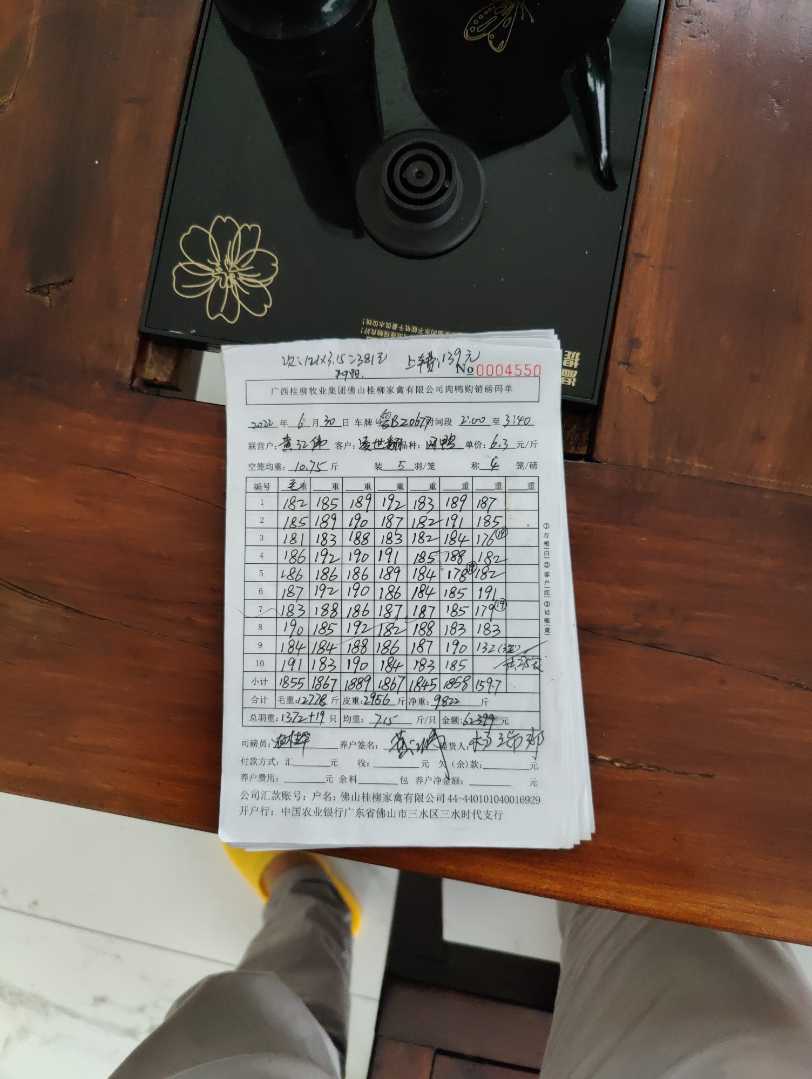 次:121×3.15=381元 上车费:139元
No 0004550
广西桂柳牧业集团佛山桂柳家禽有限公司肉鸭购销磅码单
2022 年 6 月 30 日 车牌号 粤B2067 时间段 2:00 至 3:40
联营户: 黄 客户: 凌世 品种: 肉鸭 单价: 6.3 元/斤
空笼均重: 10.75 斤 装 5 羽/笼 称 4 笼/磅
编号 毛重 重 重 重 重 重 重 重
1 182 185 189 192 183 189 187
2 185 189 190 187 182 191 185
3 181 183 188 183 182 184 176 (19)
4 186 192 190 191 185 188 182
5 186 186 186 189 184 178 (19) 182
6 187 192 190 186 184 185 191
7 183 188 186 187 187 185 179 (19)
8 190 185 192 182 188 183 183
9 184 184 188 186 187 190 132
10 191 183 190 184 183 185
小计 1855 1867 1889 1867 1845 1858 1597
合计 毛重: 12778 斤 皮重: 2956 斤 净重: 9822 斤
总羽重: 1372+19 只 均重: 7.15 斤/只 金额: 62399 元
司磅员: 养户签名: 提货人:
付款方式: 汇 元 收: 元 欠(余)款: 元
养户费用: 元 余料 包 养户净金额: 元
公司汇款账号: 户名: 佛山桂柳家禽有限公司 44-440101040016929
开户行: 中国农业银行广东省佛山市三水区三水时代支行